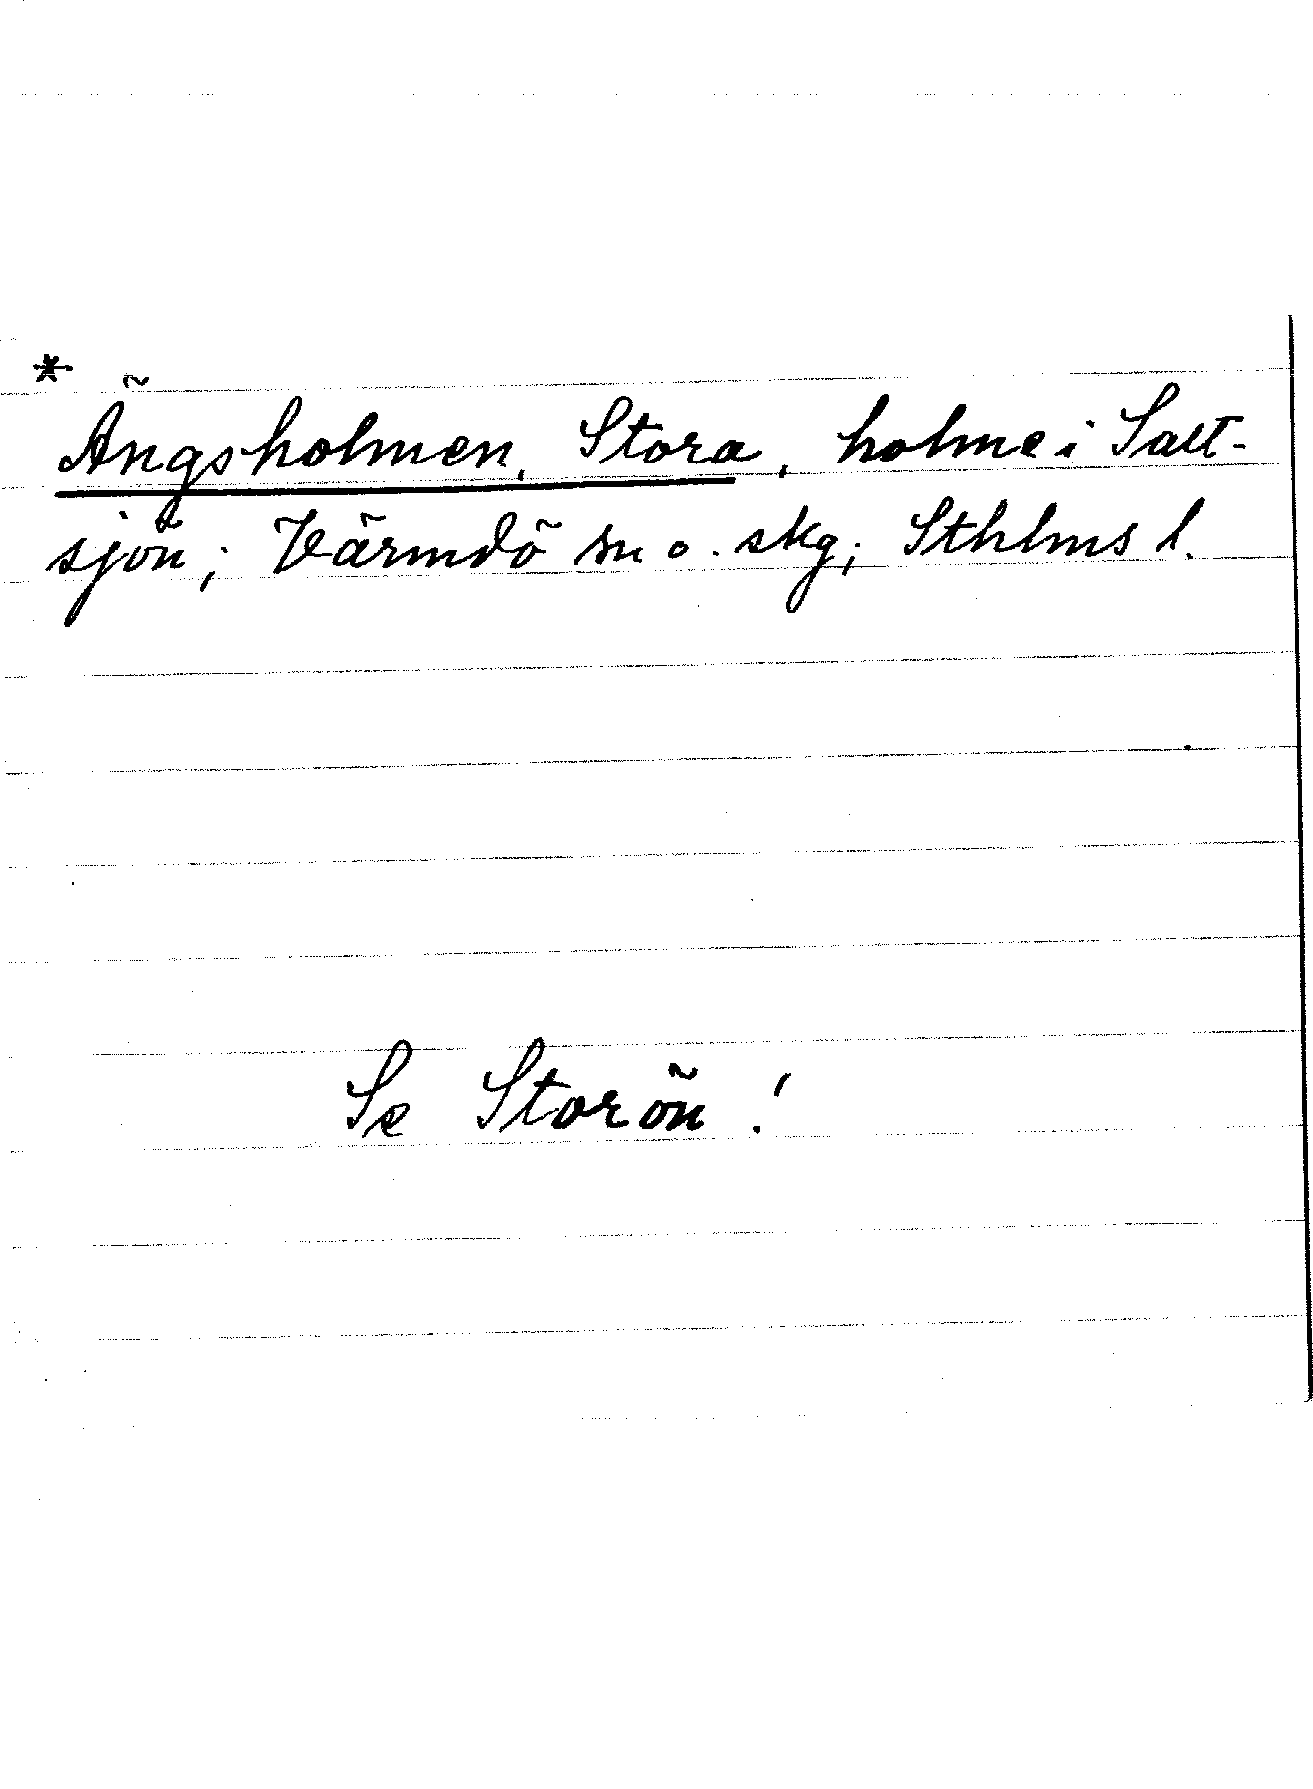 *
Ängsholmen, Stora, holme i Salt-
sjön; Värmdö sn o. skg; Sthlms l.
Se Storön!